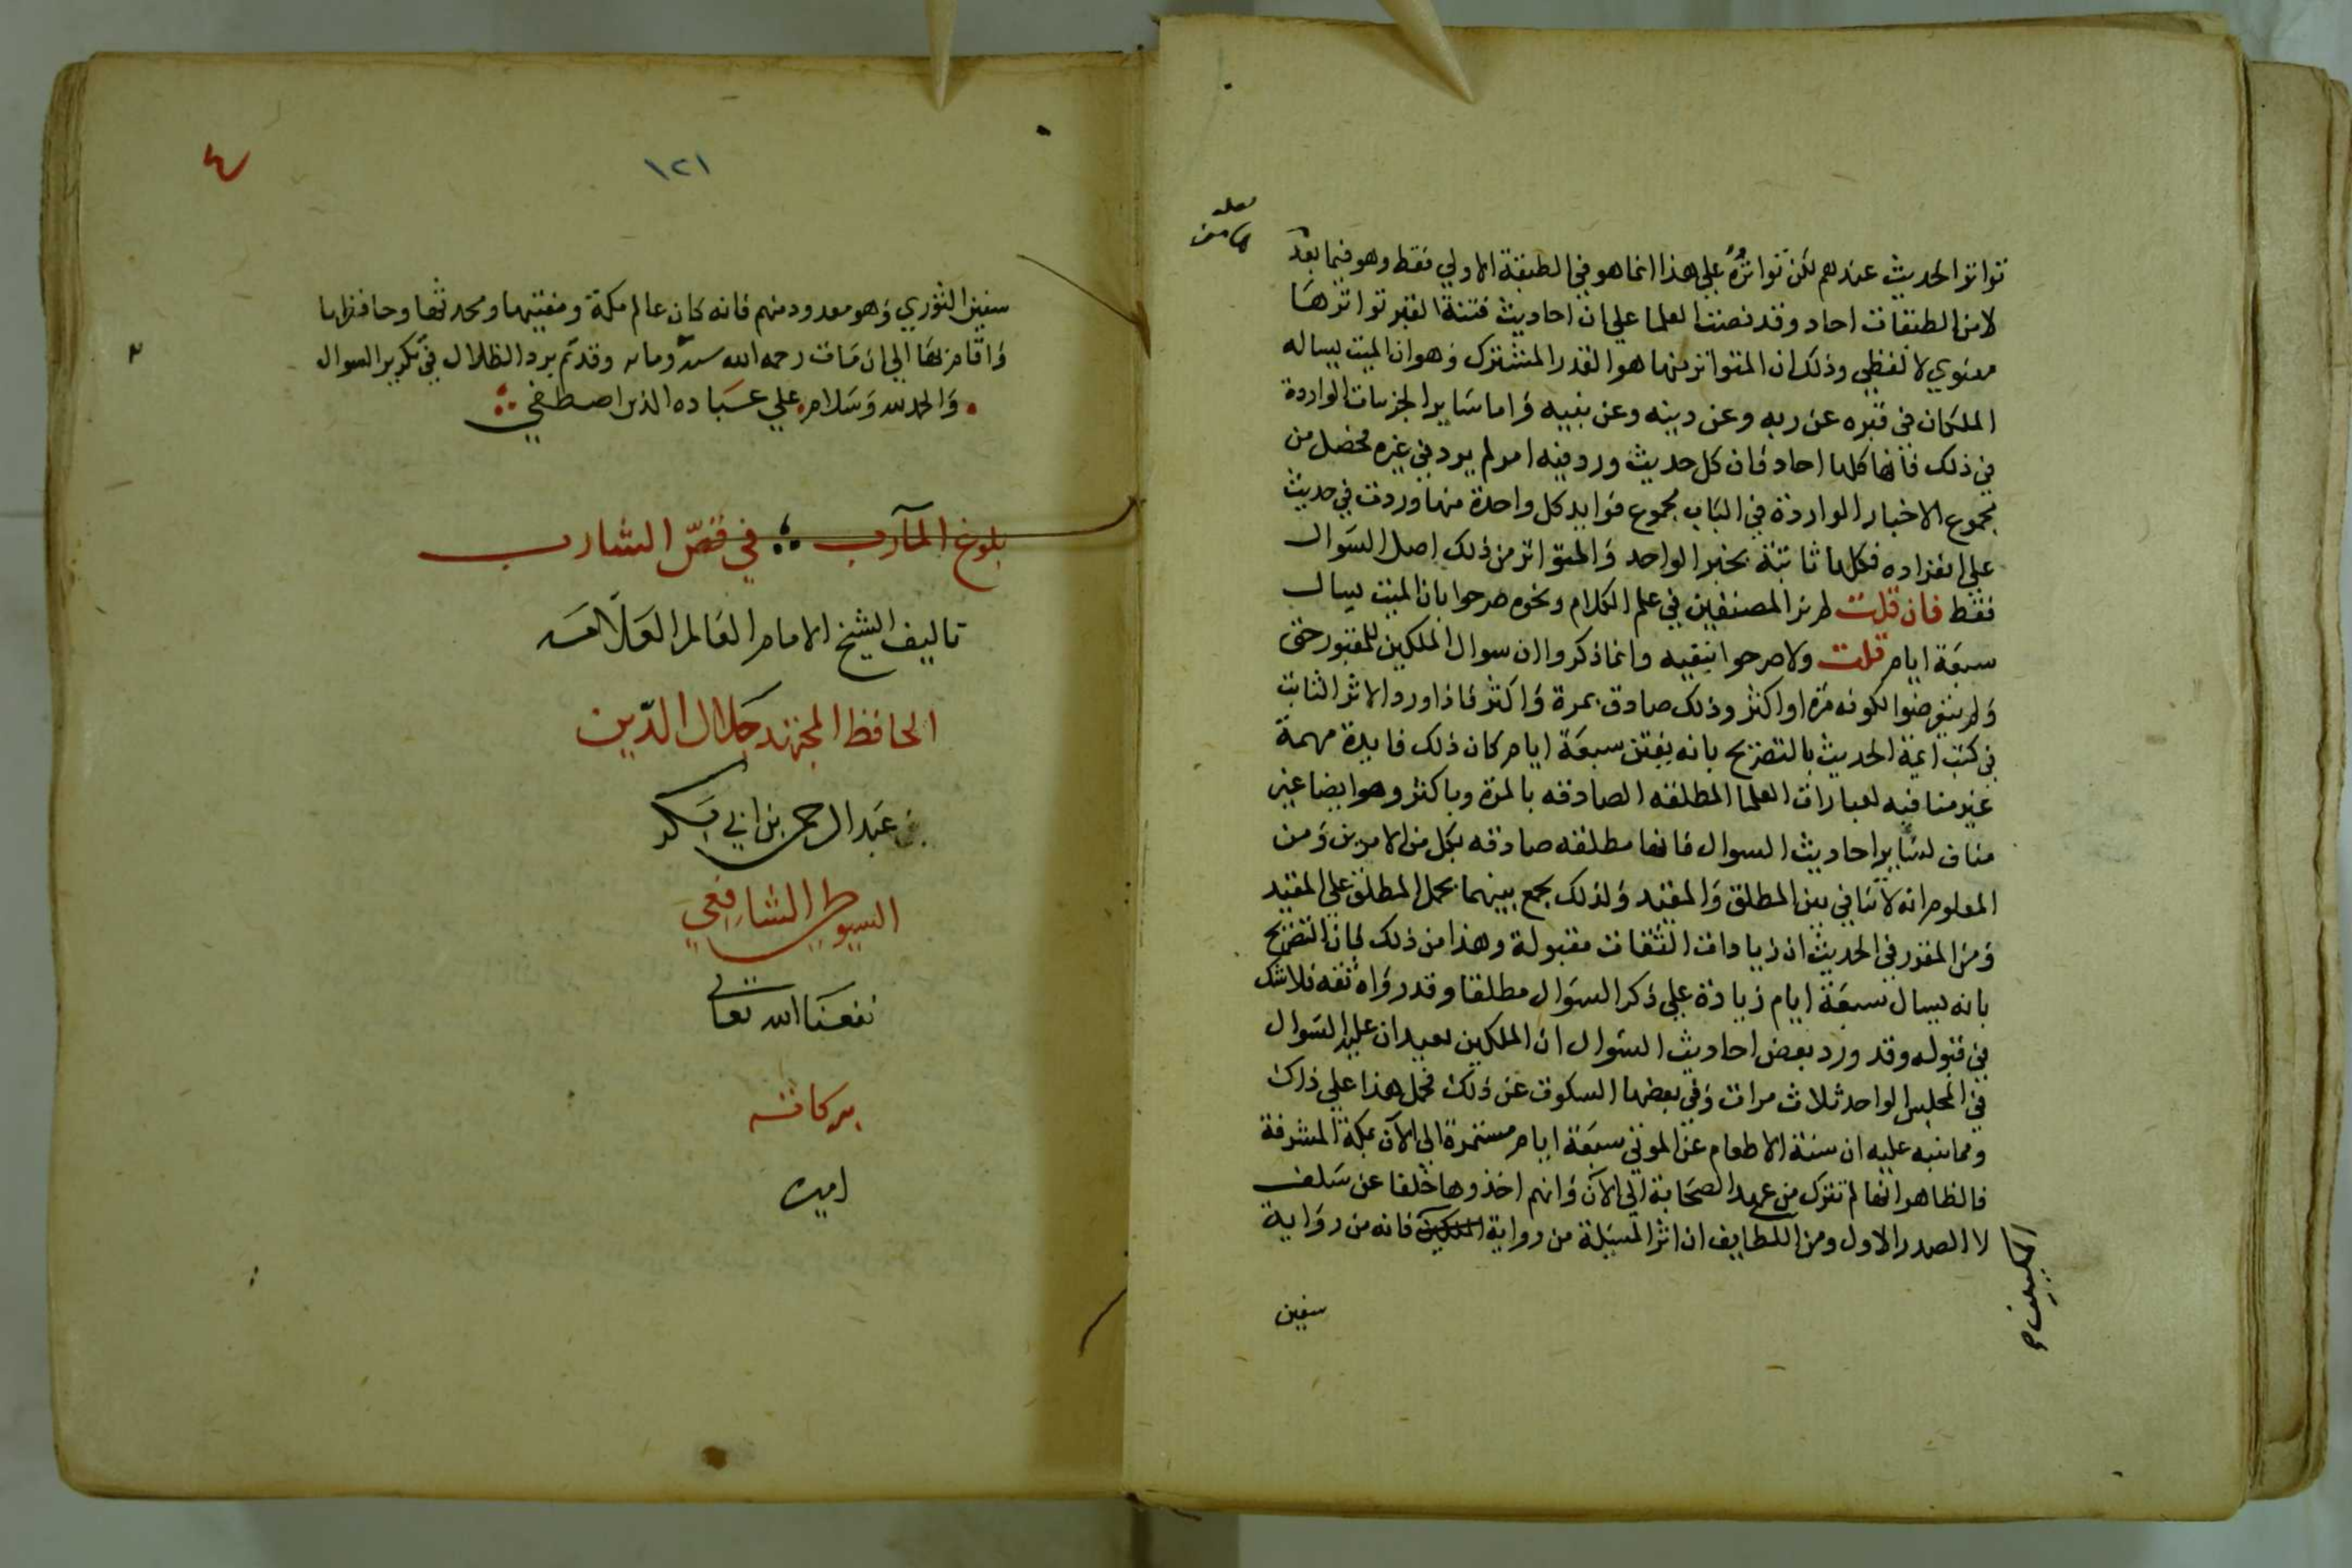 تواتر الحديث عندهم لكن تواتره علي هذا انما هو في الطبقة الاولي فقط وهو فيما بعد
لامن الطبقات احاد وقد نصت العلما علي ان احاديث فتنة القبر تواترها
معنوي لا لفظي وذلك ان المتواتر منها هو القدر المشترك وهو ان الميت يساله
الملكان في قبره عن ربه وعن دينه وعن نبيه واما ساير الجزيات الواردة
في ذلك فانها كلها احاد فان كل حديث ورد فيه امر لم يرد في غيره فحصل من
مجموع الاخبار الواردة في الباب مجموع فوايد كل واحدة منها وردت في حديث
علي انفراده فكلها ثابتة بخبر الواحد والمتواتر من ذلك اصل السوال
فقط فان قلت لم نر المصنفين في علم الكلام ونحوه صرحوا بان الميت يسال
سبعة ايام قلت ولا صرحوا بنفيه وانما ذكروا ان سوال الملكين للمقبور حق
ولم يتعرضوا لكونه مرة او اكثر وذلك صادق بمرة واكثر فاذا ورد الاثر الثابت
في كتب ايمة الحديث بالتصريح بانه يفتن سبعة ايام كان ذلك فايدة مهمة
غير منافيه لعبارات العلما المطلقه الصادقه بالمرة وباكثر وهو ايضا غير
مناف لساير احاديث السوال فانها مطلقه صادقه بكل من الامرين ومن
المعلوم انه لا تنافي بين المطلق والمقيد ولذلك يجمع بينهما بحمل المطلق علي المقيد
ومن المقرر في الحديث ان زيادات الثقات مقبولة وهذا من ذلك فان التصريح
بانه يسال سبعة ايام زيادة علي ذكر السوال مطلقا وقد رواه ثقه فلا شك
في قبوله وقد ورد بعض احاديث السوال ان الملكين يعيدان عليه السوال
في المجلس الواحد ثلاث مرات وفي بعضها السكوت عن ذلك فحمل هذا علي ذاك
ومما ننبه عليه ان سنة الاطعام عن الموتي سبعة ايام مستمرة الي الآن بمكة المشرفة
فالظاهر انها لم تترك من عهد الصحابة الي الآن وانهم اخذوها خلفا عن سلف
لا الصدر الاول ومن اللطايف ان اثر المسئلة من رواية الملكين فانه من رواية
المكيين
سفين
١٢١
٤
سفين الثوري وهو معدود منهم فانه كان عالم مكة ومفتيها ومحدثها وحافظها
واقام بها الي ان مات رحمه الله وقد تم برد الظلال في تكرير السوال
والحمد لله وسلام علي عباده الذين اصطفي
بلوغ المآرب في قص الشارب
تاليف الشيخ الامام العالم العلامه
الحافظ المجتهد جلال الدين
عبد الرحمن بن ابي بكر
السيوطي الشافعي
نفعنا الله تعالي
ببركاته
امين